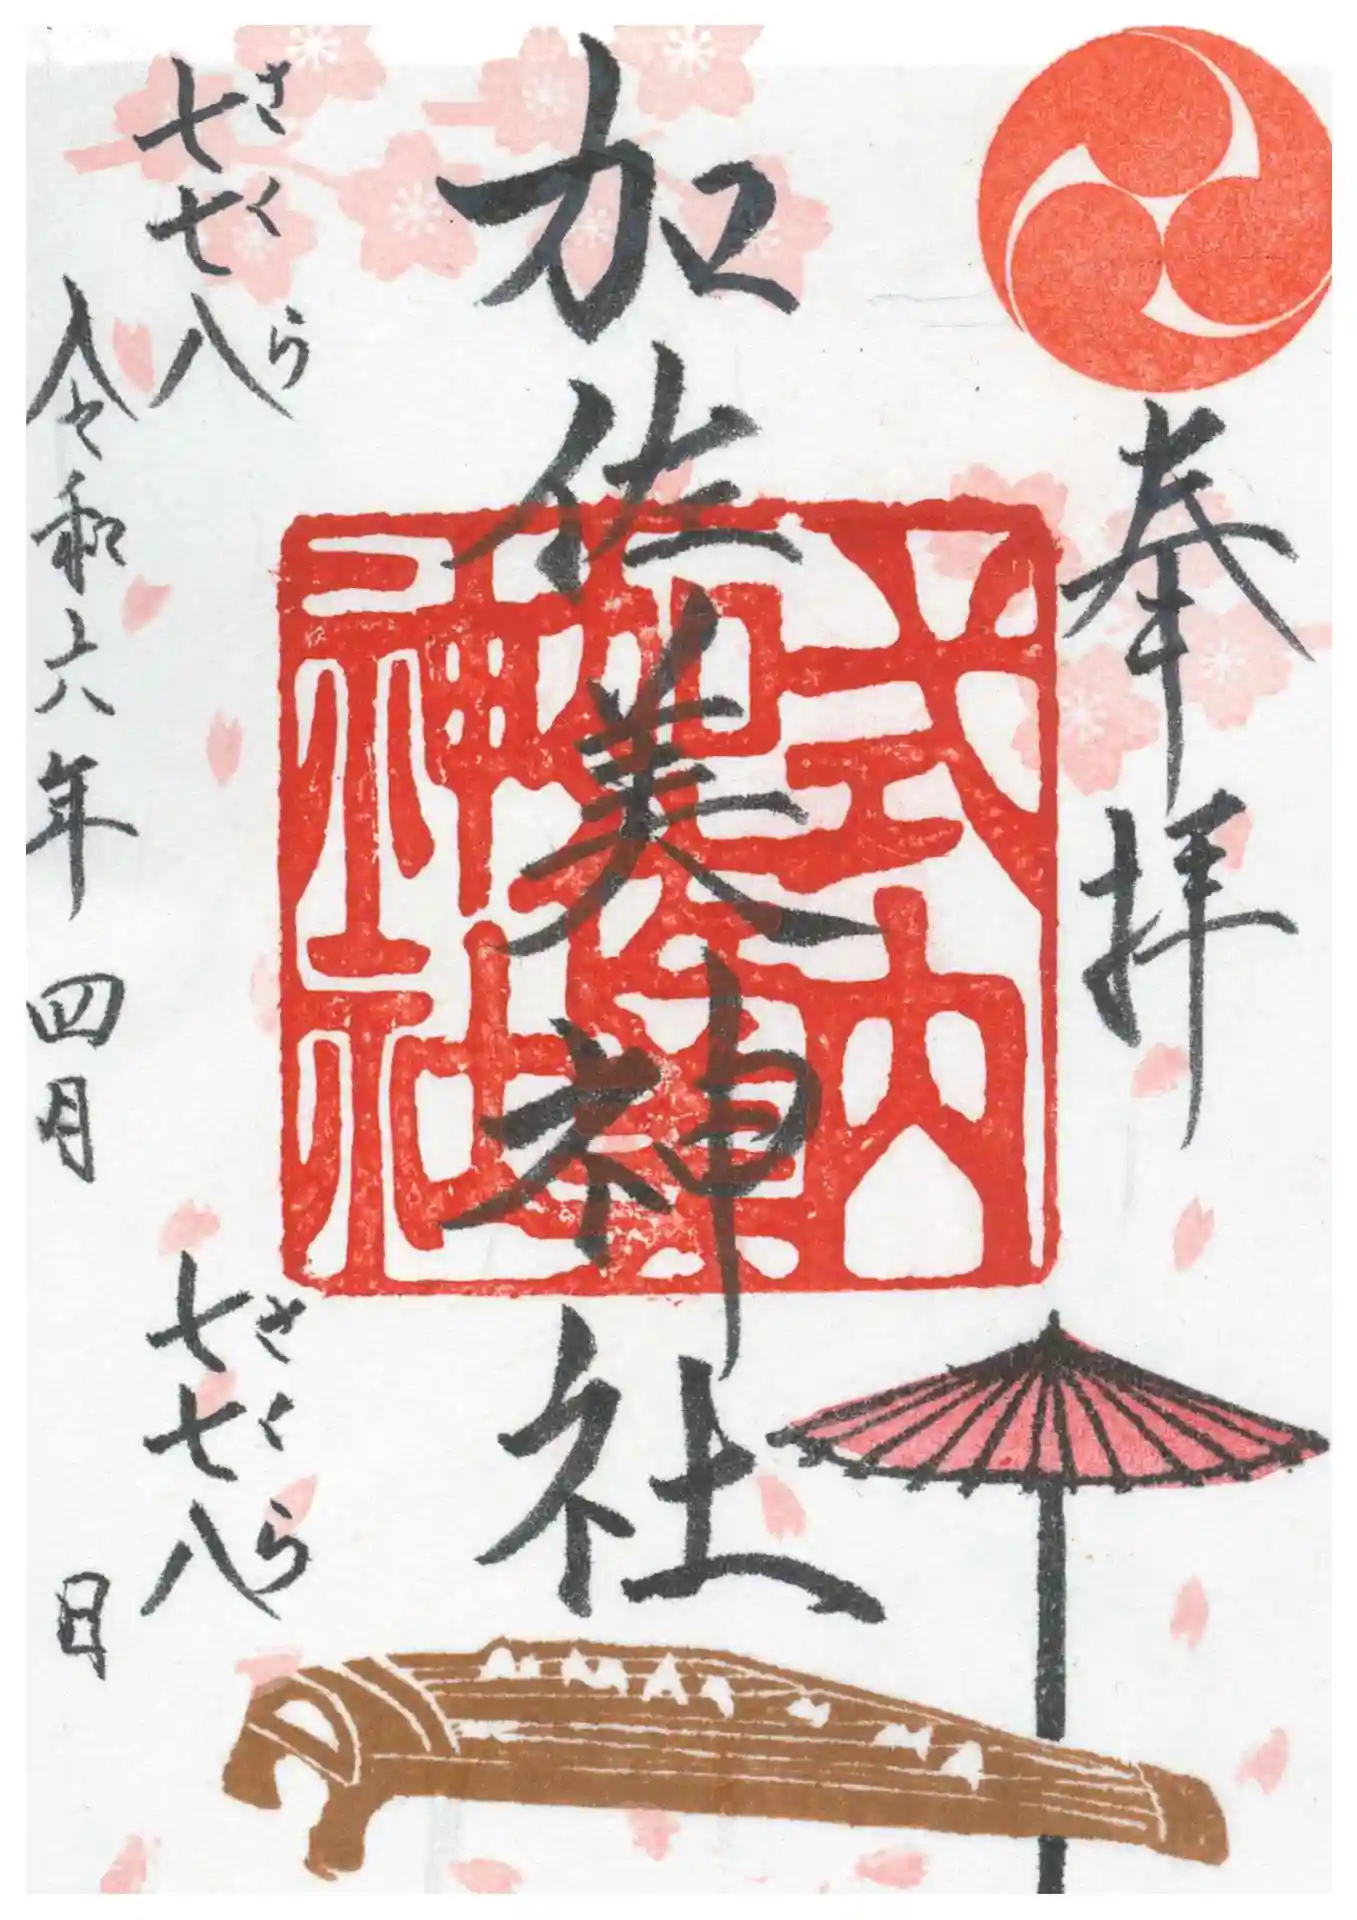 奉拝
加佐美神社
式内
加佐美
神社
七七八
さくら
七七八
さくら
令和六年四月 日